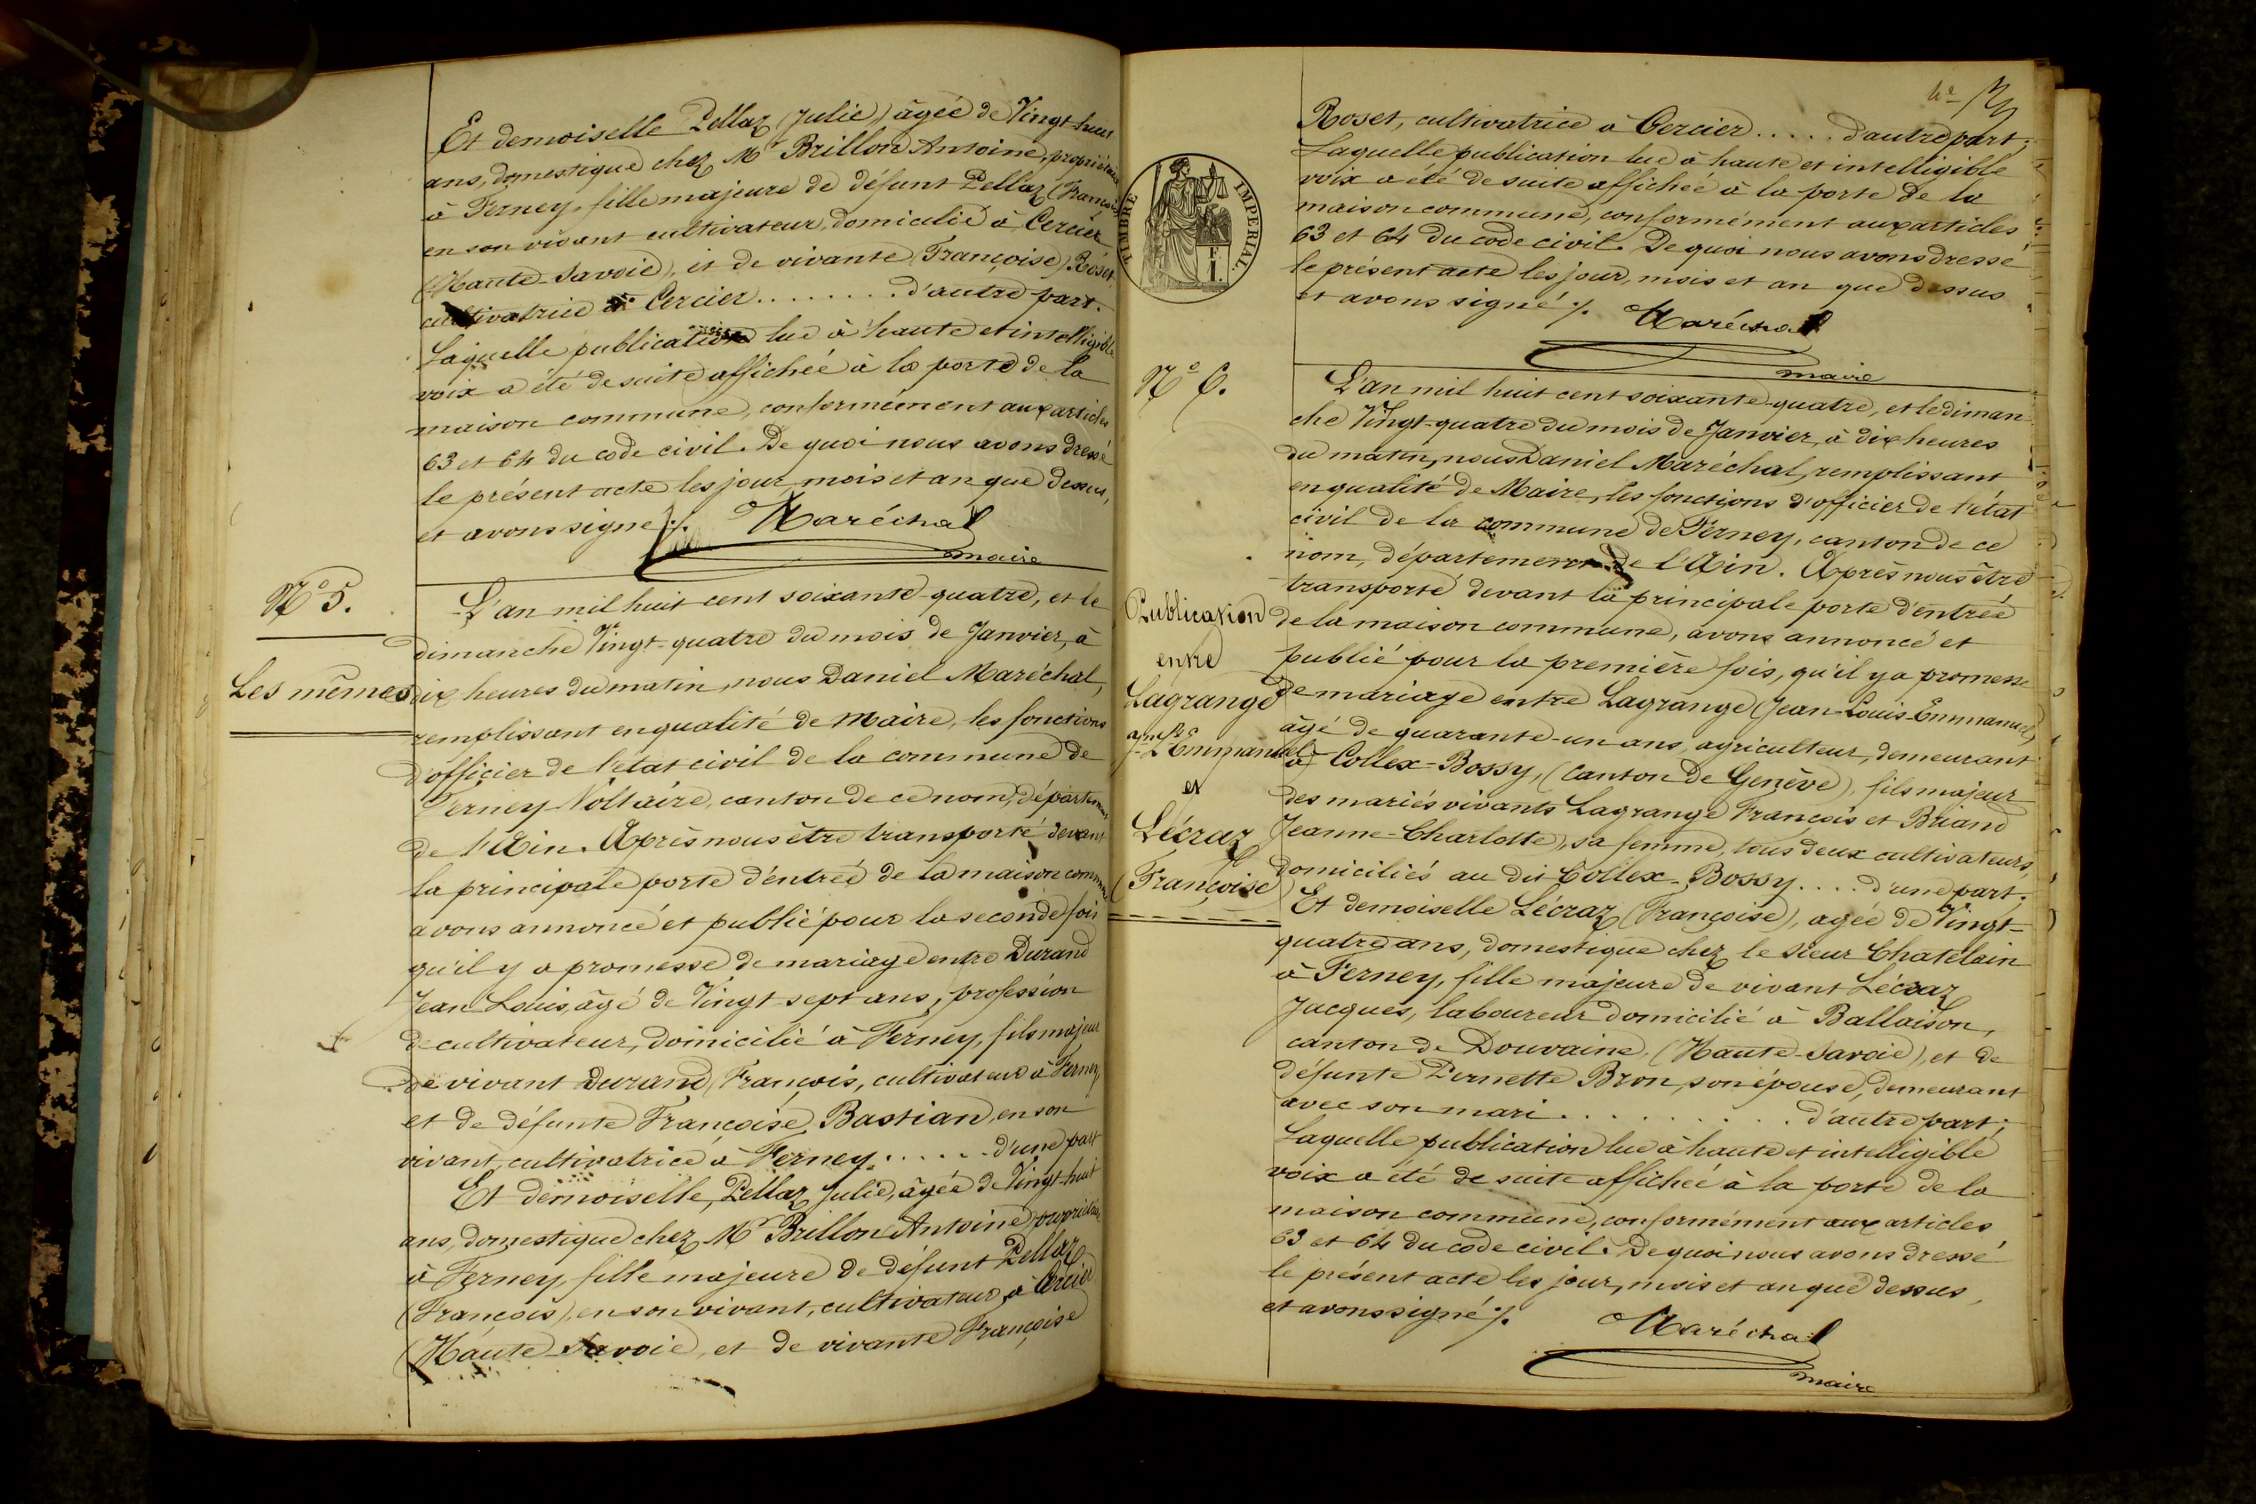 Et demoiselle Pellaz (Julie) âgée de Vingt-huit
ans, domestique chez Mr Brillon Antoine, propriétaire
à Ferney, fille majeure de défunt Pellaz (François)
en son vivant cultivateur, domicilié à Cercier
(Haute-Savoie), et de vivante (Françoise) Roset,
cultivatrice à Cercier ........ d'autre part.
Laquelle publication lue à haute et intelligible
voix a été de suite affichée à la porte de la
maison commune, conformément aux articles
63 et 64 du code civil. De quoi nous avons dressé
le présent acte les jour, mois et an que dessus,
et avons signé ./. Maréchal
maire
No 5.
Les mêmes
L'an mil huit cent soixante-quatre, et le
dimanche Vingt-quatre du mois de Janvier, à
dix heures du matin, nous Daniel Maréchal,
remplissant en qualité de Maire, les fonctions
d'officier de l'état civil de la commune de
Ferney Voltaire, canton de ce nom, département
de l'Ain. Après nous être transporté devant
la principale porte d'entrée de la maison commune
avons annoncé et publié pour la seconde fois
qu'il y a promesse de mariage entre Durand
Jean Louis, âgé de Vingt sept ans, profession
de cultivateur, domicilié à Ferney, fils majeur
de vivant Durand François, cultivateur à Ferney
et de défunte Françoise Bastian, en son
vivant, cultivatrice à Ferney ...... d'une part
Et demoiselle, Pellaz Julie, âgée de Vingt-huit
ans, domestique chez Mr Brillon Antoine, propriétaire
à Ferney, fille majeure de défunt Pellaz
(François), en son vivant, cultivateur à Cercier
(Haute-Savoie), et de vivante Françoise
4e
TIMBRE IMPERIAL.
E. F.
Roset, cultivatrice à Cercier ..... d'autre part;
Laquelle publication lue à haute et intelligible
voix a été de suite affichée à la porte de la
maison commune, conformément aux articles
63 et 64 du code civil. De quoi nous avons dressé
le présent acte les jour, mois et an que dessus
et avons signé ./. Maréchal
maire
No 6.
Publication
entre
Lagrange
Jn Ls Emmanuel
et
Lécraz
(Françoise)
L'an mil huit cent soixante-quatre, et le diman
che Vingt-quatre du mois de Janvier, à dix heures
du matin, nous Daniel Maréchal, remplissant
en qualité de Maire, les fonctions d'officier de l'état
civil de la commune de Ferney, canton de ce
nom, département de l'Ain. Après nous être
transporté devant la principale porte d'entrée
de la maison commune, avons annoncé et
publié pour la première fois, qu'il y a promesse
de mariage entre Lagrange (Jean-Louis-Emmanuel)
âgé de quarante-un ans, agriculteur, demeurant
à Collex-Bossy, (canton de Genève), fils majeur
des mariés vivants Lagrange François et Briand
Jeanne-Charlotte, sa femme, tous deux cultivateurs,
domiciliés au dit Collex-Bossy .... d'une part.
Et demoiselle Lécraz (Françoise), agée de Vingt-
quatre ans, domestique chez le sieur Chatelain
à Ferney, fille majeure de vivant Lécraz
Jacques, laboureur domicilié à Ballaison,
canton de Douvaine, (Haute-Savoie), et de
défunte Pernette Bron, son épouse, demeurant
avec son mari ........ d'autre part;
Laquelle publication lue à haute et intelligible
voix a été de suite affichée à la porte de la
maison commune, conformément aux articles
63 et 64 du code civil. De quoi nous avons dressé
le présent acte les jour, mois et an que dessus,
et avons signé ./. Maréchal
maire